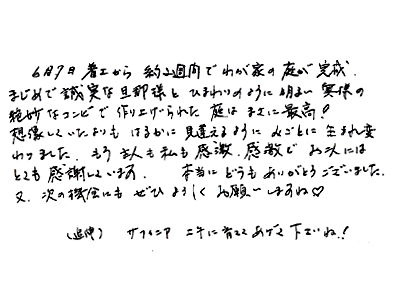 6月7日 着工から 約2週間で わが家の 庭が 完成.
まじめで 誠実な 旦那様と ひまわりのように 明るい 奥様の
絶妙な コンビで 作り上げられた 庭は まさに 最高!
想像していたよりも はるかに 見違えるように みごとに 生まれ変
わりました. もう 主人も 私も 感激. 感激で お二人には
とても 感謝しています. 本当に どうも ありがとう ございました.
又. 次の 機会にも ぜひ よろしく お願いしますね♡
(追伸) サフィニア 大事に 育てて あげて 下さいね.!